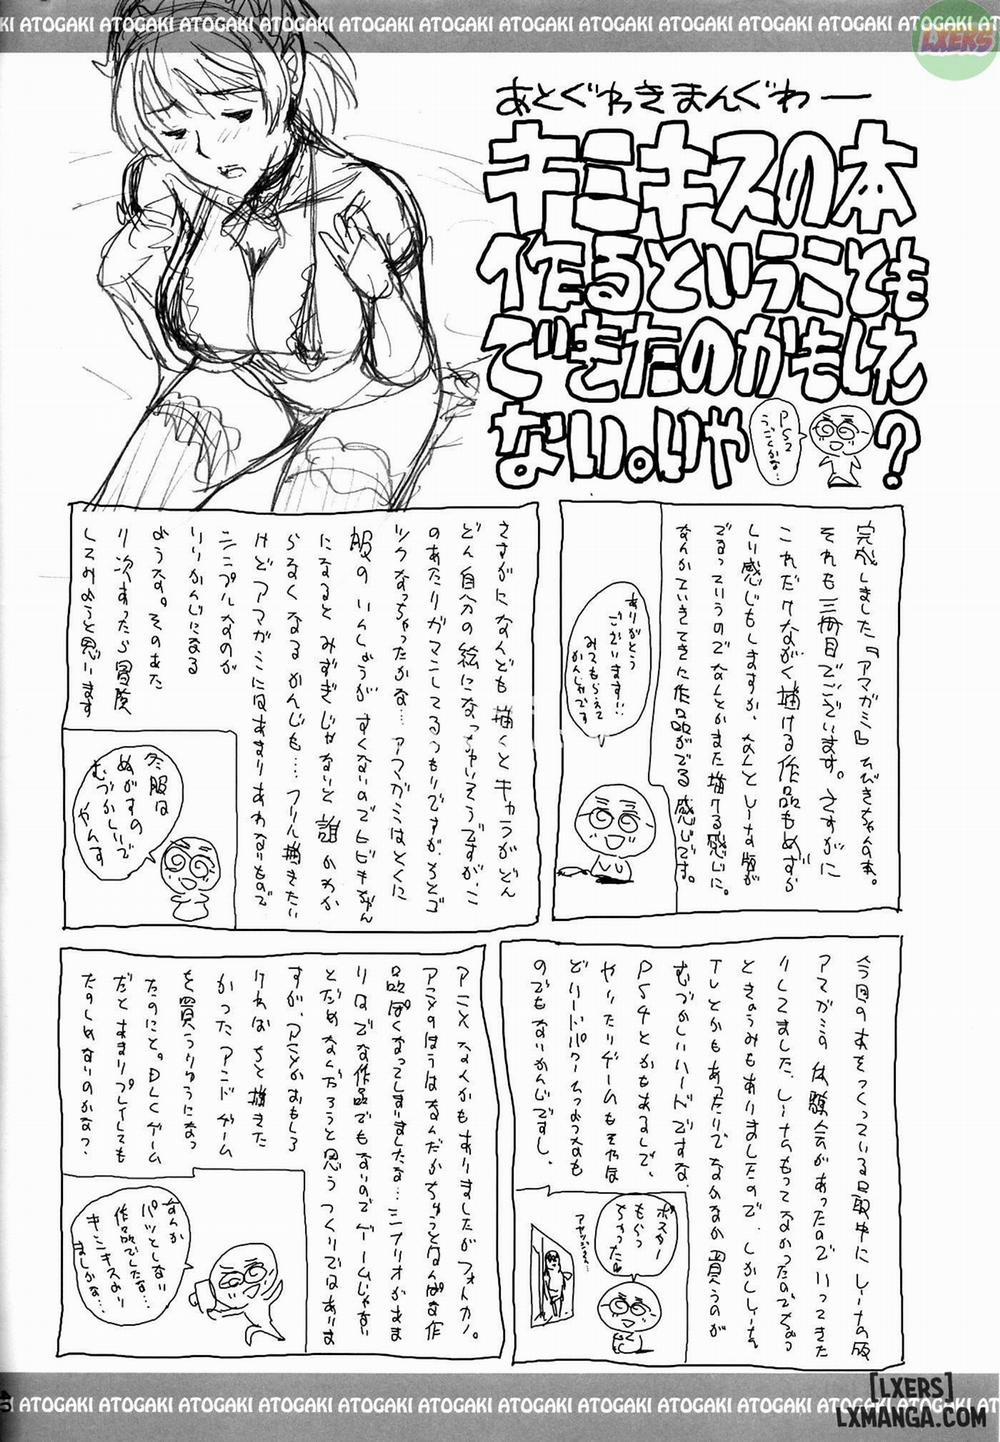 ATOGAKI ATOGAKI ATOGAKI ATOGAKI ATOGAKI ATOGAKI ATOGAKI ATOGAKI ATOGAKI
LXERS
あとぐわきまんぐわー
キミキスの本
作るということも
できたのかもしれ
ない。いや
PS2
うごくかな…
?
完成しました「アマガミ」ひびきちゃん本。
それも三冊目でございます。さすがに
これだけながく描ける作品もめずら
しい感じもしますが、なんとしーな版が
でるっていうのでなんとかまた描ける感じに。
なんかていきてきに作品がでる感じです。
ありがとう
ございます!!
みてもらえて
かんしゃです
さすがになんども描くとキャラがどん
どん自分の絵になっちゃいそうですが、こ
のあたりガマンしてるつもりですが、そろそろ
ツラくなっちゃったかな…アマガミはとくに
服のいしょうがすくないのでヒビキちゃん
になるとみずぎじゃないと誰かわか
らなくなるかんじも…フリル描きたい
けどアマガミにはあまりあわないもので
シンプルなのが
いいかんじになる
ような。そのあた
り次あったら冒険
してみようと思います
冬服は
ぬがすの
むづかしいで
やんす
今回の本をつくっている最中にしーなの版
アマガミの体験会があったのでいってきた
りしてました。しーなもってなかったのでちょっ
ときょうみもありましたので、しかししーな
TVとかもあったりでなかなか買うのが
むづかしいハードですな。
PS4とかもあるしで、
やりたいゲームもそやほ
どリードパケームつようなも
のでもないかんじですし。
ポスター
もらっ
ちゃった
アニメなんかもありましたがフォトカノ。
アニメのほうはなんだかちょっとなんぱな作
品ぽくなってしまいましたな…シナリオがあま
りはでな作品でもないのでゲームじゃない
とだめなんだろうと思うつくりではありま
すが、アニメがおもしろ
ければもちっと描きた
かったアンドゲーム
を買うりゆうになっ
たのにと。DLCゲーム
だとあまりプレイしても
たのしめないのかな?
なんか
パッとしない
作品でしたな…
キミキスより
ましかな…
ATOGAKI ATOGAKI ATOGAKI ATOGAKI ATOGAKI ATOGAKI ATOGAKI ATOGAKI
40
[LXERS]
LXMANGA.COM